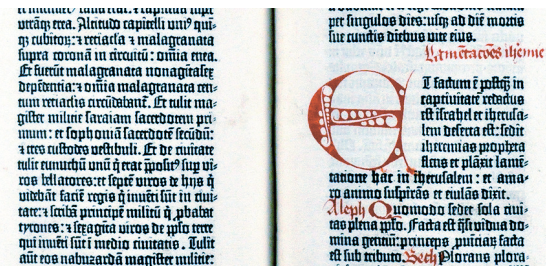 utrāq; erea. Altitudo capitelli uni⁹ quī=
q; cubitoꝝ: ⁊ retiacla ⁊ malagranata
supra coronā in circuitu: omīa enea.
Et fuerūt malagranata nonagītasex
depēdentia: ⁊ omīa malagranata cen=
tum retiaclis circūdabant. Et tulit ma=
gister militie saraiam sacerdotem pri=
mum: et sophoniā sacerdotē secūdū:
⁊ tres custodes vestibuli. Et de ciuitate
tulit eunuchū unū q̄ erat p̄posit⁹ suꝑ vi=
ros bellatores: et septē viros de hijs q̄
videbāt faciē regis q̄ inuēti sūt in ciui=
tate: ⁊ scribā principē militū q̄ ꝓbabat
tyrones: ⁊ sexagīta viros de pplo terre
qui inuēti sūt ī medio ciuitatis. Tulit
aūt eos nabuzardā magister militie:
per singulos dies: usq; ad diē mortis
sue cunctis diebus vite eius.
Lamētacōes iheremie
ET factum ē postq̄ in
captiuitatē redactus
est israhel et iherusa=
lem deserta est: sedit
iheremias propheta
flens et plāxit lamē=
tatione hac in iherusalem: et ama=
ro animo suspirās et eiulās dixit.
Aleph Quomodo sedet sola ciui=
tas plena pplo. Facta est q̄si vidua do=
mina gentiū: princeps ꝓuīciaꝝ facta
est sub tributo. Beth Plorans plora=